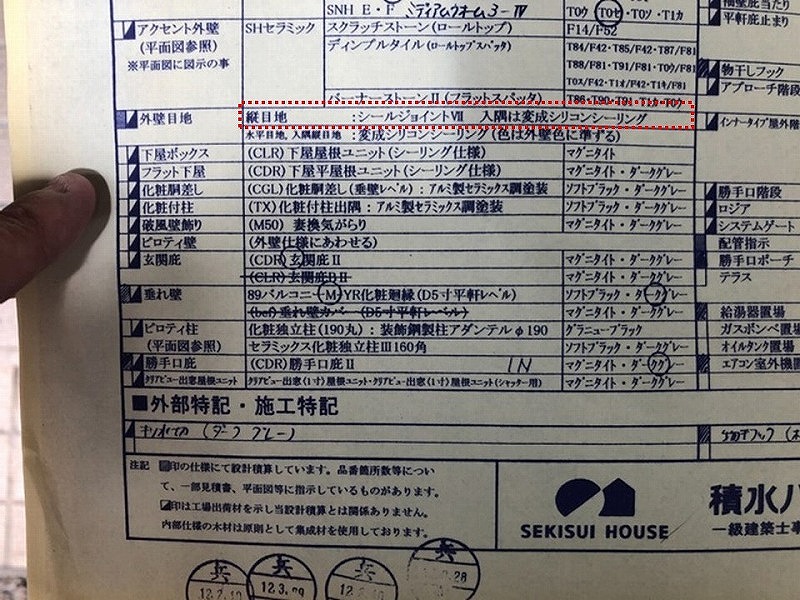 SNH E・F ミディアムウォーム3-Ⅳ T0ウ・T0セ・T0ソ・T1カ
アクセント外壁 SHセラミック スクラッチストーン(ロールトップ) F14/F52
(平面図参照) ディンプルタイル(ロールトップスパッタ) T84/F42・T85/F42・T87/F81
※平面図に図示の事 T88/F81・T91/F81・T0ウ/F81
T0ス/F42・T1オ/F42・T1キ/F81
バーナーストーンⅡ(フラットスパッタ) T86・T90・T91・T1カ・T0ウ
外壁目地 縦目地 :シールジョイントⅦ 入隅は変成シリコンシーリング
水平目地、入隅縦目地 :変成シリコンシーリング(色は外壁色に準する)
下屋ボックス (CLR)下屋屋根ユニット(シーリング仕様) マグニタイト
フラット下屋 (CDR)下屋平屋根ユニット(シーリング仕様) マグニタイト・ダークグレー
化粧胴差し (CGL)化粧胴差し(垂壁レベル):アルミ製セラミックス調塗装 ソフトブラック・ダークグレー
化粧付柱 (TX)化粧付柱出隅:アルミ製セラミックス調塗装 ソフトブラック・ダークグレー
破風壁飾り (M50) 妻換気がらり マグニタイト・ダークグレー
ピロティ壁 (外壁仕様にあわせる)
玄関庇 (CDR)玄関庇Ⅱ マグニタイト・ダークグレー
(CLR)玄関庇BⅡ マグニタイト・ダークグレー
垂れ壁 89バルコニー(M)YR化粧廻縁(D5寸平軒レベル) ソフトブラック・ダークグレー
(bef)垂れ壁カバー (D5寸平軒レベル)
ピロティ柱 化粧独立柱(190丸):装飾鋼製柱アダンテルφ190 グラニューブラック
(平面図参照) セラミックス化粧独立柱Ⅲ160角 ソフトブラック・ダークグレー
勝手口庇 (CDR)勝手口庇Ⅱ IN マグニタイト・ダークグレー
クリアビュー出窓屋根ユニット クリアビュー出窓(1寸)屋根ユニット・クリアビュー出窓(1寸)屋根ユニット(シャッター用) マグニタイト・ダークグレー
袖壁庇当たり
平軒庇止まり
物干しフック
アプローチ階段
インナータイプ屋外
勝手口階段
ロジア
システムゲート
配管指示
勝手口ポーチ
テラス
給湯器置場
ガスボンベ置場
オイルタンク置場
エアコン室外機置
■外部特記・施工特記
(ダークグレー)
物干フック
注記 印の仕様にて設計積算しています。品番箇所数等につい
て、一部見積書、平面図等に指示しているものがあります。
印は工場出荷材を示し当設計積算とは関係ありません。
内部仕様の木材は原則として集成材を使用しております。
SEKISUI HOUSE
積水ハ
一級建築士事
兵 兵 兵 兵
12.3.09